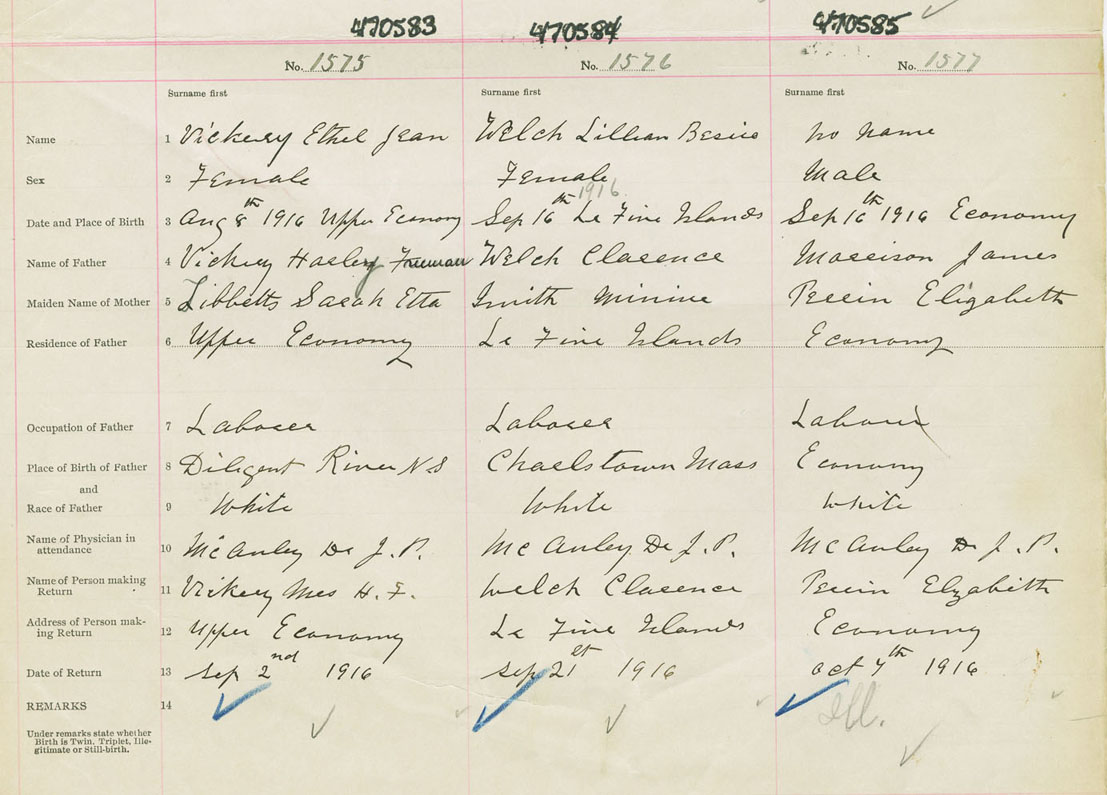 470583 470584 470585
No. 1575 No. 1576 No. 1577
Surname first Surname first Surname first
Name 1 Vickery Ethel Jean Welch Lillian Besice no name
Sex 2 Female Female Male
1916
Date and Place of Birth 3 Aug 8th 1916 Upper Economy Sep 16th Le Five Islands Sep 16th 1916 Economy
Name of Father 4 Vickery Harley Freeman Welch Clarence Morrison James
Maiden Name of Mother 5 Tibbetts Sarah Etta Smith Minine Perrin Elizabeth
Residence of Father 6 Upper Economy Le Five Islands Economy
Occupation of Father 7 Laborer Laborer Laborer
Place of Birth of Father 8 Diligent River N S Charlstown Mass Economy
and
Race of Father 9 White White White
Name of Physician in
attendance 10 McAuley Dr J. P. McAuley Dr J. P. McAuley Dr J. P.
Name of Person making
Return 11 Vickery Mrs H. F. Welch Clarence Perrin Elzabith
Address of Person mak-
ing Return 12 Upper Economy Le Five Islands Economy
Date of Return 13 Sep 2nd 1916 Sep 21st 1916 Oct 7th 1916
REMARKS 14 Ill.
Under remarks state whether
Birth is Twin, Triplet, Ille-
gitimate or Still-birth.